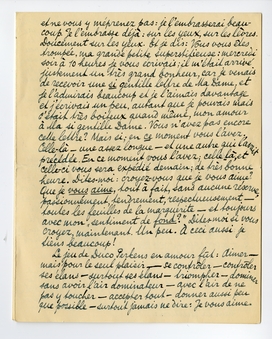 et ne vous y méprenez pas: je l'embrasserai beau-
coup. Je l'embrasse déjà: sur les yeux, sur les lèvres.
Doucement sur les yeux. Et je dis: Vous vous êtes
trompée, ma grande petite superstitieuse: mercredi
soir à 10 heures je vous écrivais; il m'était arrivé
justement un très grand bonheur, car je venais
de recevoir une si gentille lettre de Ma Dame, et
je l'admirais beaucoup et l'aimais davantage,
et j'écrivais un peu, autant que je pouvais mais
c'était très boiteux quand même, mon amour
à Ma si gentille Dame. Vous n'avez pas encore
cette lettre? Mais si; en ce moment vous l'avez,
celle-là — une assez longue — et une autre qui l'avait
précédée. En ce moment vous l'avez; celle-là, et
celle-ci vous sera expédiée demain; de très bonne
heure. Dites-moi: croyez-vous que je vous aime?
Que je vous aime, tout à fait, sans aucune réserve,
passionnément, tendrement, respectueusement —
toutes les feuilles de la marguerite — et toujours
avec mon sentiment de fond? Dites-moi si vous
croyez, maintenant. Un peu. À ceci aussi je
tiens beaucoup!
Le jeu de Duco Perkens en amour fut: aimer —
mais pour le seul plaisir — se contrôler — contrôler
ses élans — surtout ses élans — triompher — dominer
sans avoir l'air dominateur — avec l'air de ne
pas y toucher — accepter tout — donner aussi peu
que possible — surtout jamais ne dire: Je vous aime.